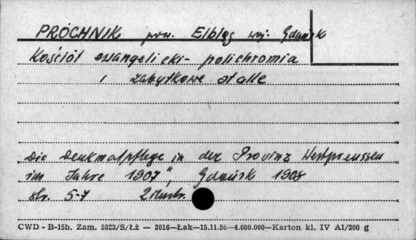 PRÓCHNIK pow. Elbląg woj. Gdańsk
Kościół ewangelicki - polichromia
i zabytkowe stalle
"Die Denkmalpflege in der Provinz Westpreussen
im Jahre 1907", Gdańsk 1908
str. 5-7 2 ilustr.
CWD - B-15b. Zam. 5323/S/Łż — 3016—Łak—15.11.56—4.000.000—Karton kl. IV A1/200 g